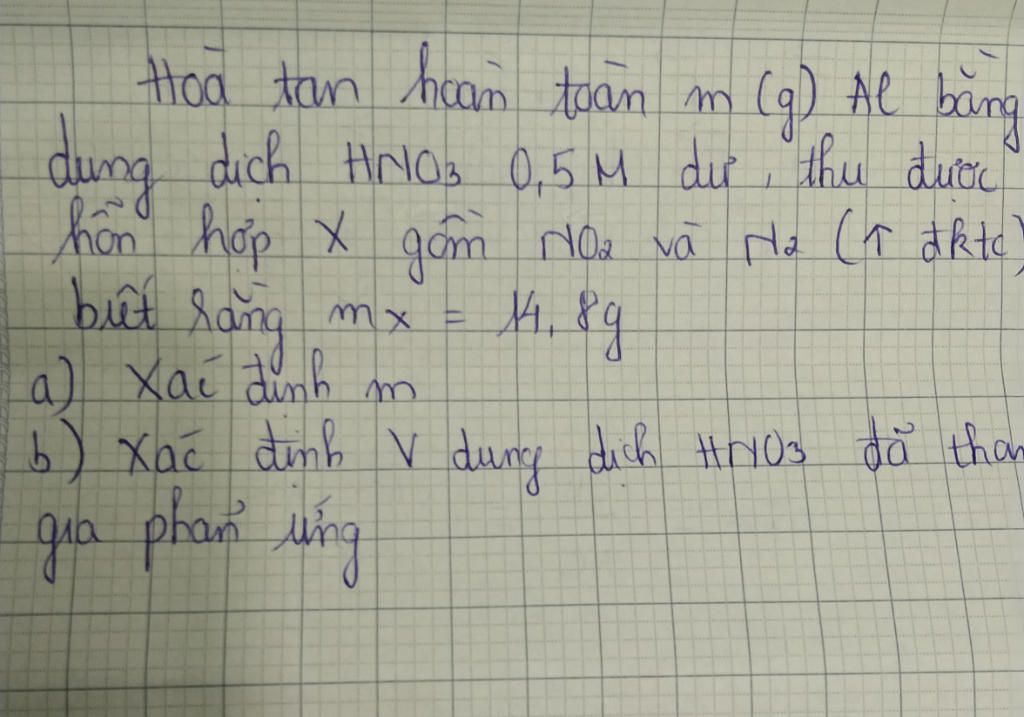 Hoà tan hoàn toàn m (g) Al bằng
dung dịch HNO3 0,5M dư, thu được
hỗn hợp X gồm NO2 và N2 (↑ đktc)
biết rằng mx = 14,8g
a) Xác định m
b) Xác định V dung dịch HNO3 đã tham
gia phản ứng